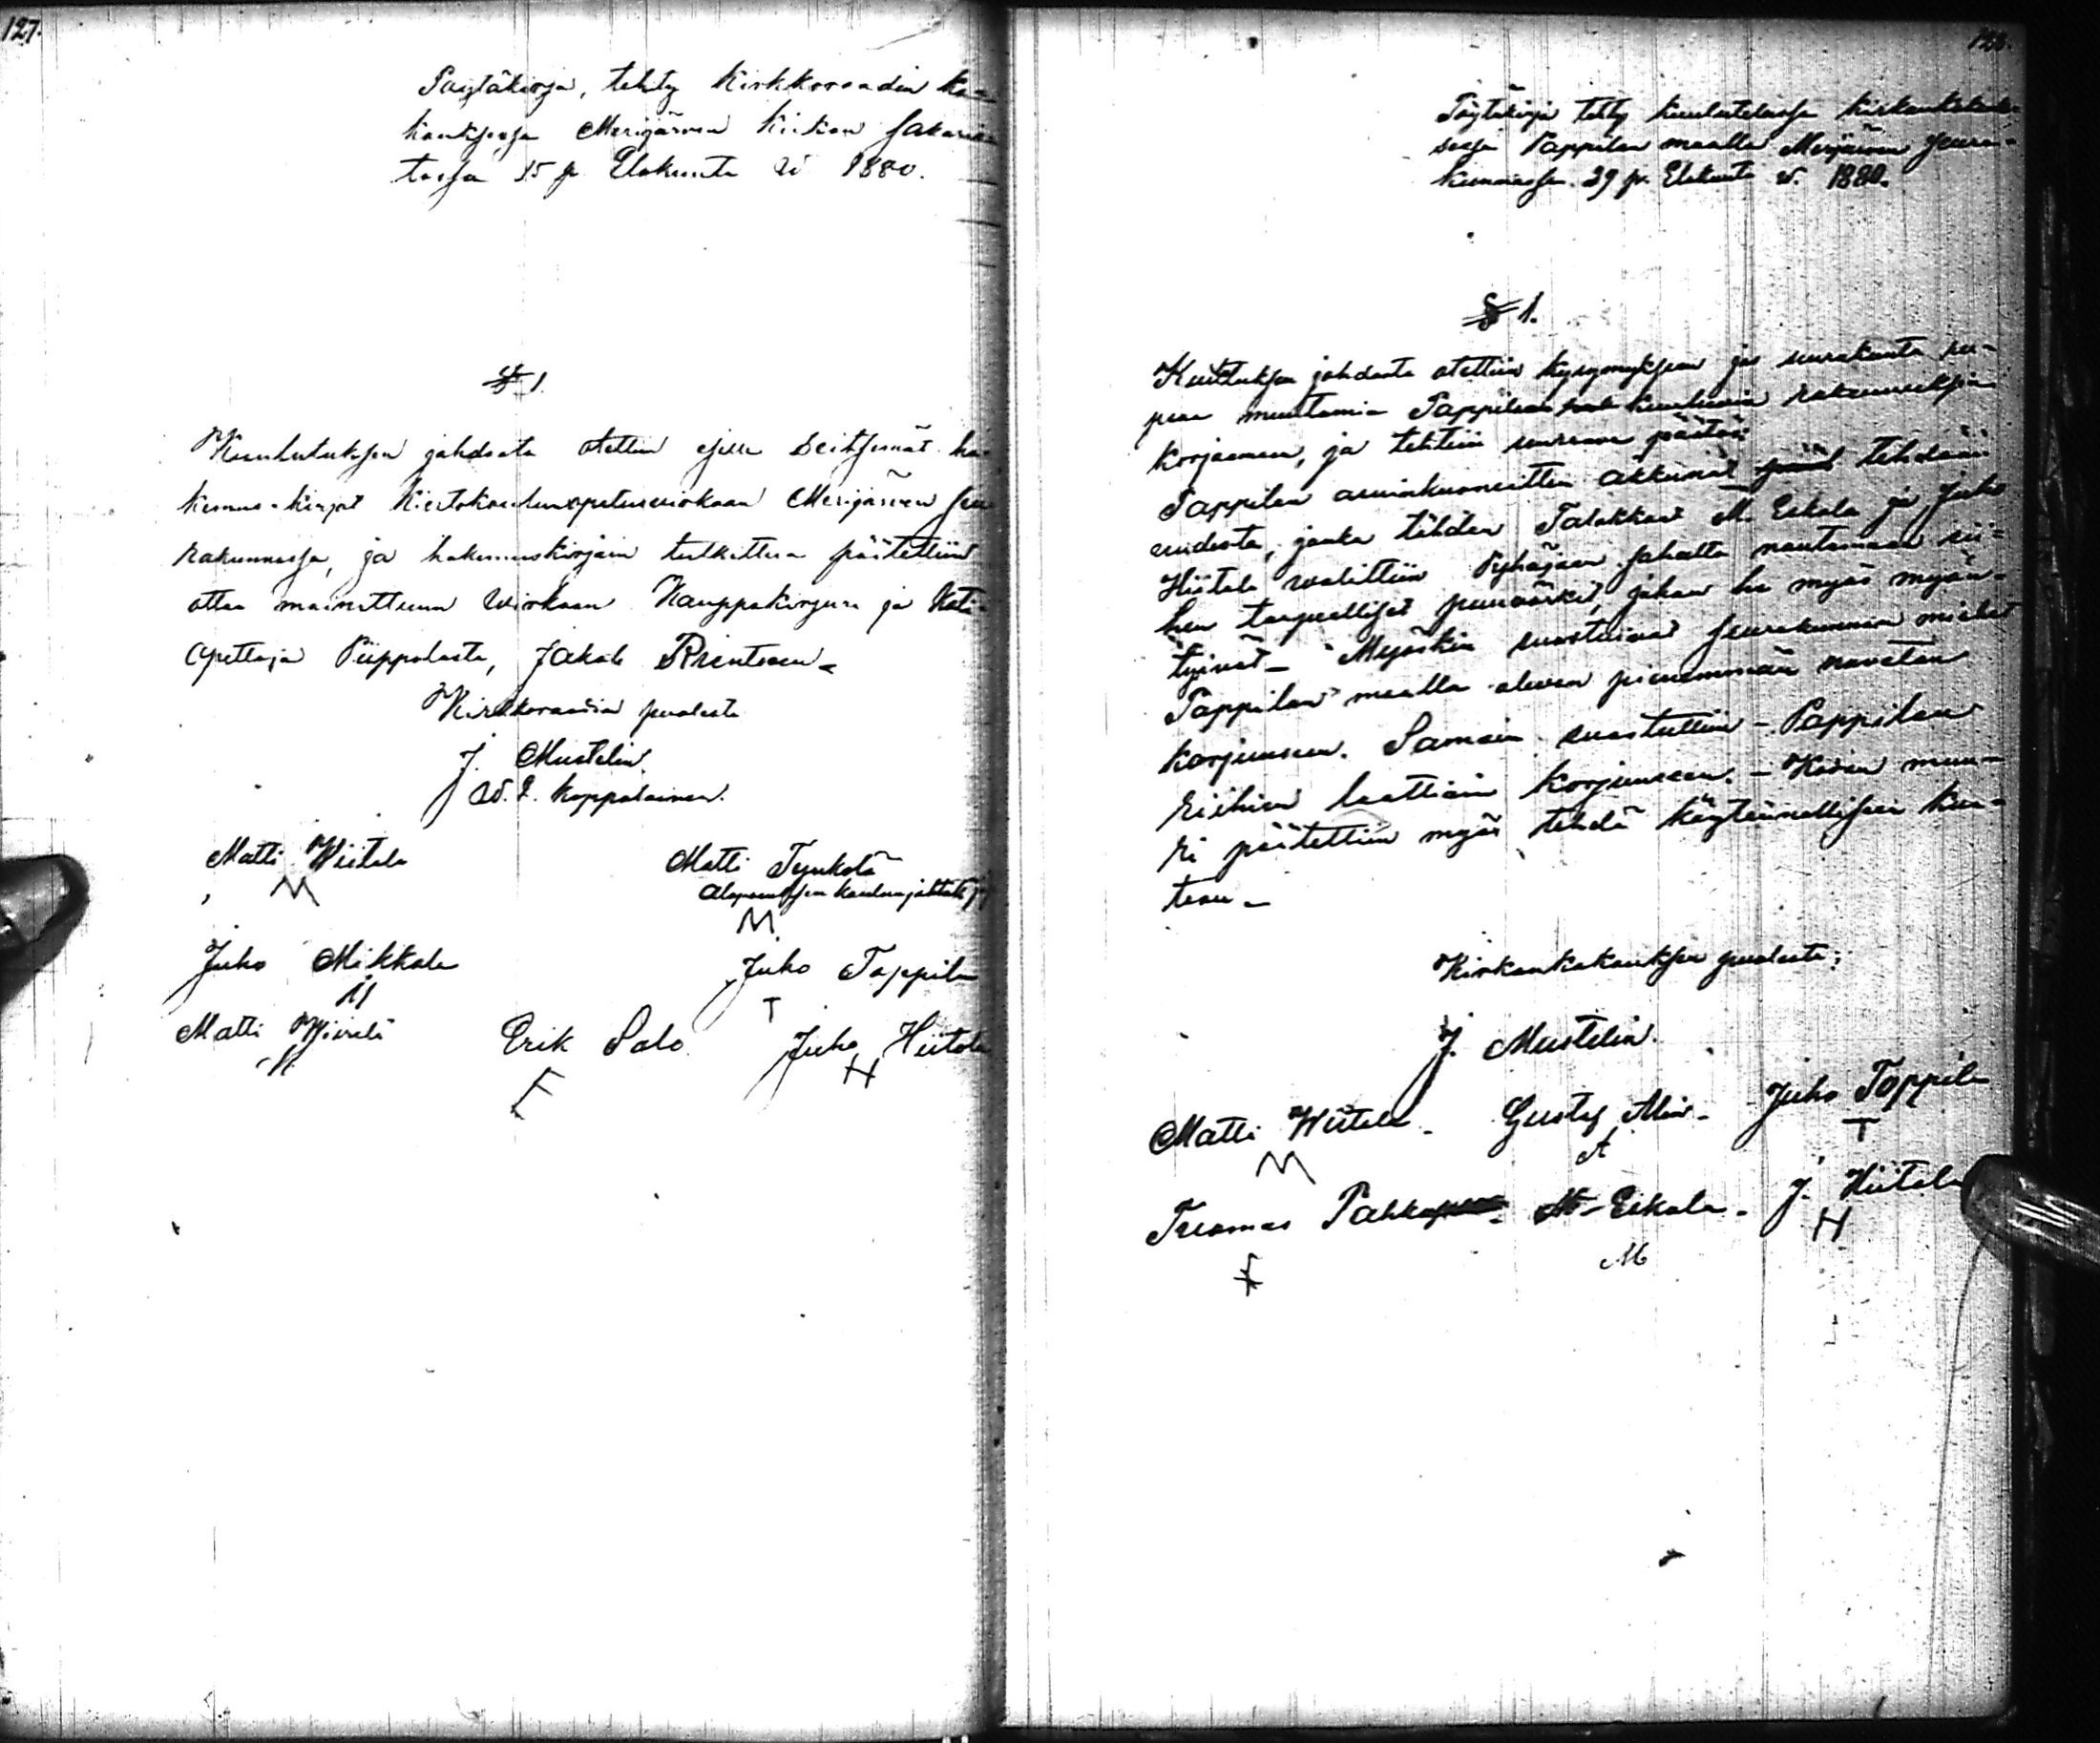 127.
Pöytäkirja, tehty Kirkkoraadin ko-
kouksessa Merijärven Kirkon sakaris-
tossa 15 p. Elokuuta w 1880.
§ 1.
Kuulutuksen johdosta otettiin esille seitsemät ha-
kemus-kirjat Kiertokoulunopetusvirkaan Merijärven seu-
rakunnassa, ja hakemuskirjain tutkittua päätettiin
ottaa mainittuun Wirkaan Kauppakirjuri ja Koti-
opettaja Piippolasta, Jakob Rientosen
Kirkkoraadin puolesta
J. Mustelin
Matti Wiitala
M
Matti Tynkälä
M
Juho Mikkola
M
Juho Toppila
T
Matti
M
Erik Salo
E
Juho Hiitola
H
128.
Pöytäkirja tehty kuulutetussa kirkonkokouk-
sessa Pappilan maalla Merijärven seura-
kunnassa 29 p. Elokuuta w. 1880.
§ 1.
Kuulutuksen johdosta otettiin kysymykseen jos seurakunta ru-
peaa muutamia Pappilaan kuuluvia rakennuksia
korjaamaan, ja tehtiin seuraava päätös:
Pappilan asuinhuoneitten akkunat tehdään
uudesta, jonka tähden Talokkaat M. Eskola ja Juho
Hiitola walittiin Pyhäjoen sahalta noutamaan sii-
hen tarpeelliset puuwärkit, johon he myös myön-
tyivät – Myöskin suostuivat seurakunnan miehet
Pappilan maalla olevan pienemmän navetan
korjuuseen. Samoin suostuttiin – Pappilan
riihien laattiain korjuuseen. – Kivi muu-
ri päätettiin myös tehdä käytännölliseen kun-
toon –
Kirkonkokouksen puolesta:
J. Mustelin.
Matti Wiitala – Gustaf – Juho Toppila
M A T
Tuomas – M – Eskola – J. Hiitola
M H